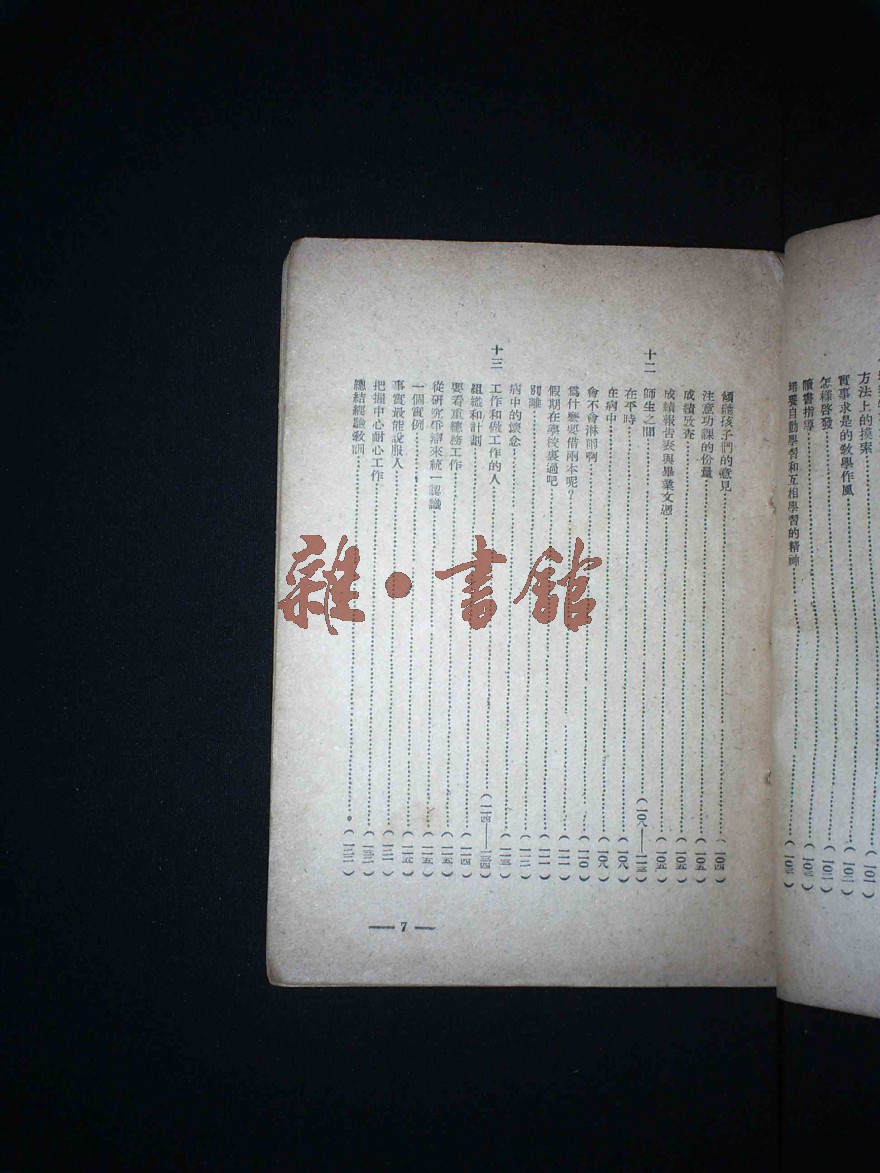 方法上的摸索……（一〇一）
實事求是的敎學作風……（一〇二）
怎樣啓發……（一〇二）
讀書指導……（一〇三）
培養自動學習和互相學習的精神……（一〇三）
傾聽孩子們的意見……（一〇四）
注意功課的份量……（一〇五）
成績攷查……（一〇五）
成績報吿表與畢業文憑……（一〇五）
十二 師生之間……（一〇八——一一三）
在平時……（一〇八）
在病中……（一〇九）
會不會淋雨啊……（一一〇）
爲什麽要借兩本呢？……（一一一）
假期在學校裏過吧……（一一一）
別離……（一一二）
病中的懷念……（一一三）
十三 工作和做工作的人……（一一四——一三四）
組織和計劃……（一一四）
要看重總務工作……（一一五）
從硏究爭辯來統一認識……（一一五）
一個實例……（一一五）
事實最能說服人……（一二一）
把握中心耐心工作……
總結經驗敎訓……
— 7 —
雜·書館